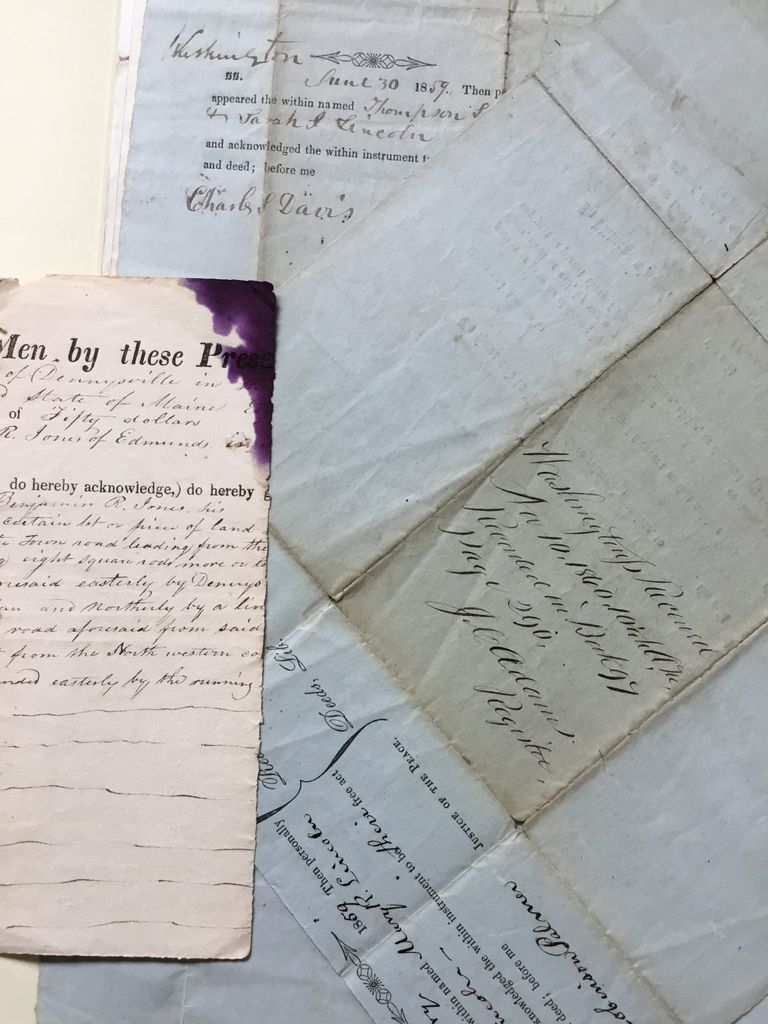 Washington
ss. June 30 1859. Then p
appeared the within named Thompson
& Sarah J Lincoln
and acknowledged the within instrument t
and deed; before me
Charles S Davis
Men by these Prese
of Dennysville in
State of Maine
of Fifty dollars
R. Jones of Edmunds in
do hereby acknowledge,) do hereby
Benjamin R. Jones, his
certain lot or piece of land
Town road leading from the
eight square rods more or le
resaid easterly by Dennys
and Northerly by a lin
road aforesaid from said
from the North western co
nded easterly by the running
Washington ss Received
1860
Recorded in Book
Page 290.
J. C. Adams
Register
Deeds, Lib.
this
free act
JUSTICE OF THE PEACE.
1859 Then personally
within named Mary R. Lincoln
knowledged the within instrument to be their
deed; before me
Robinson Palmer